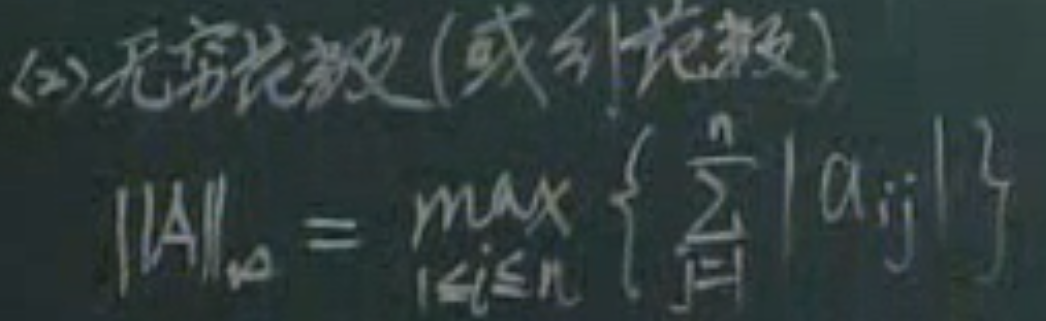 (2) 无穷范数 (或列范数)
||A||∞ = max_{1≤j≤n} { ∑_{j=1}^{n} |a_{ij}| }